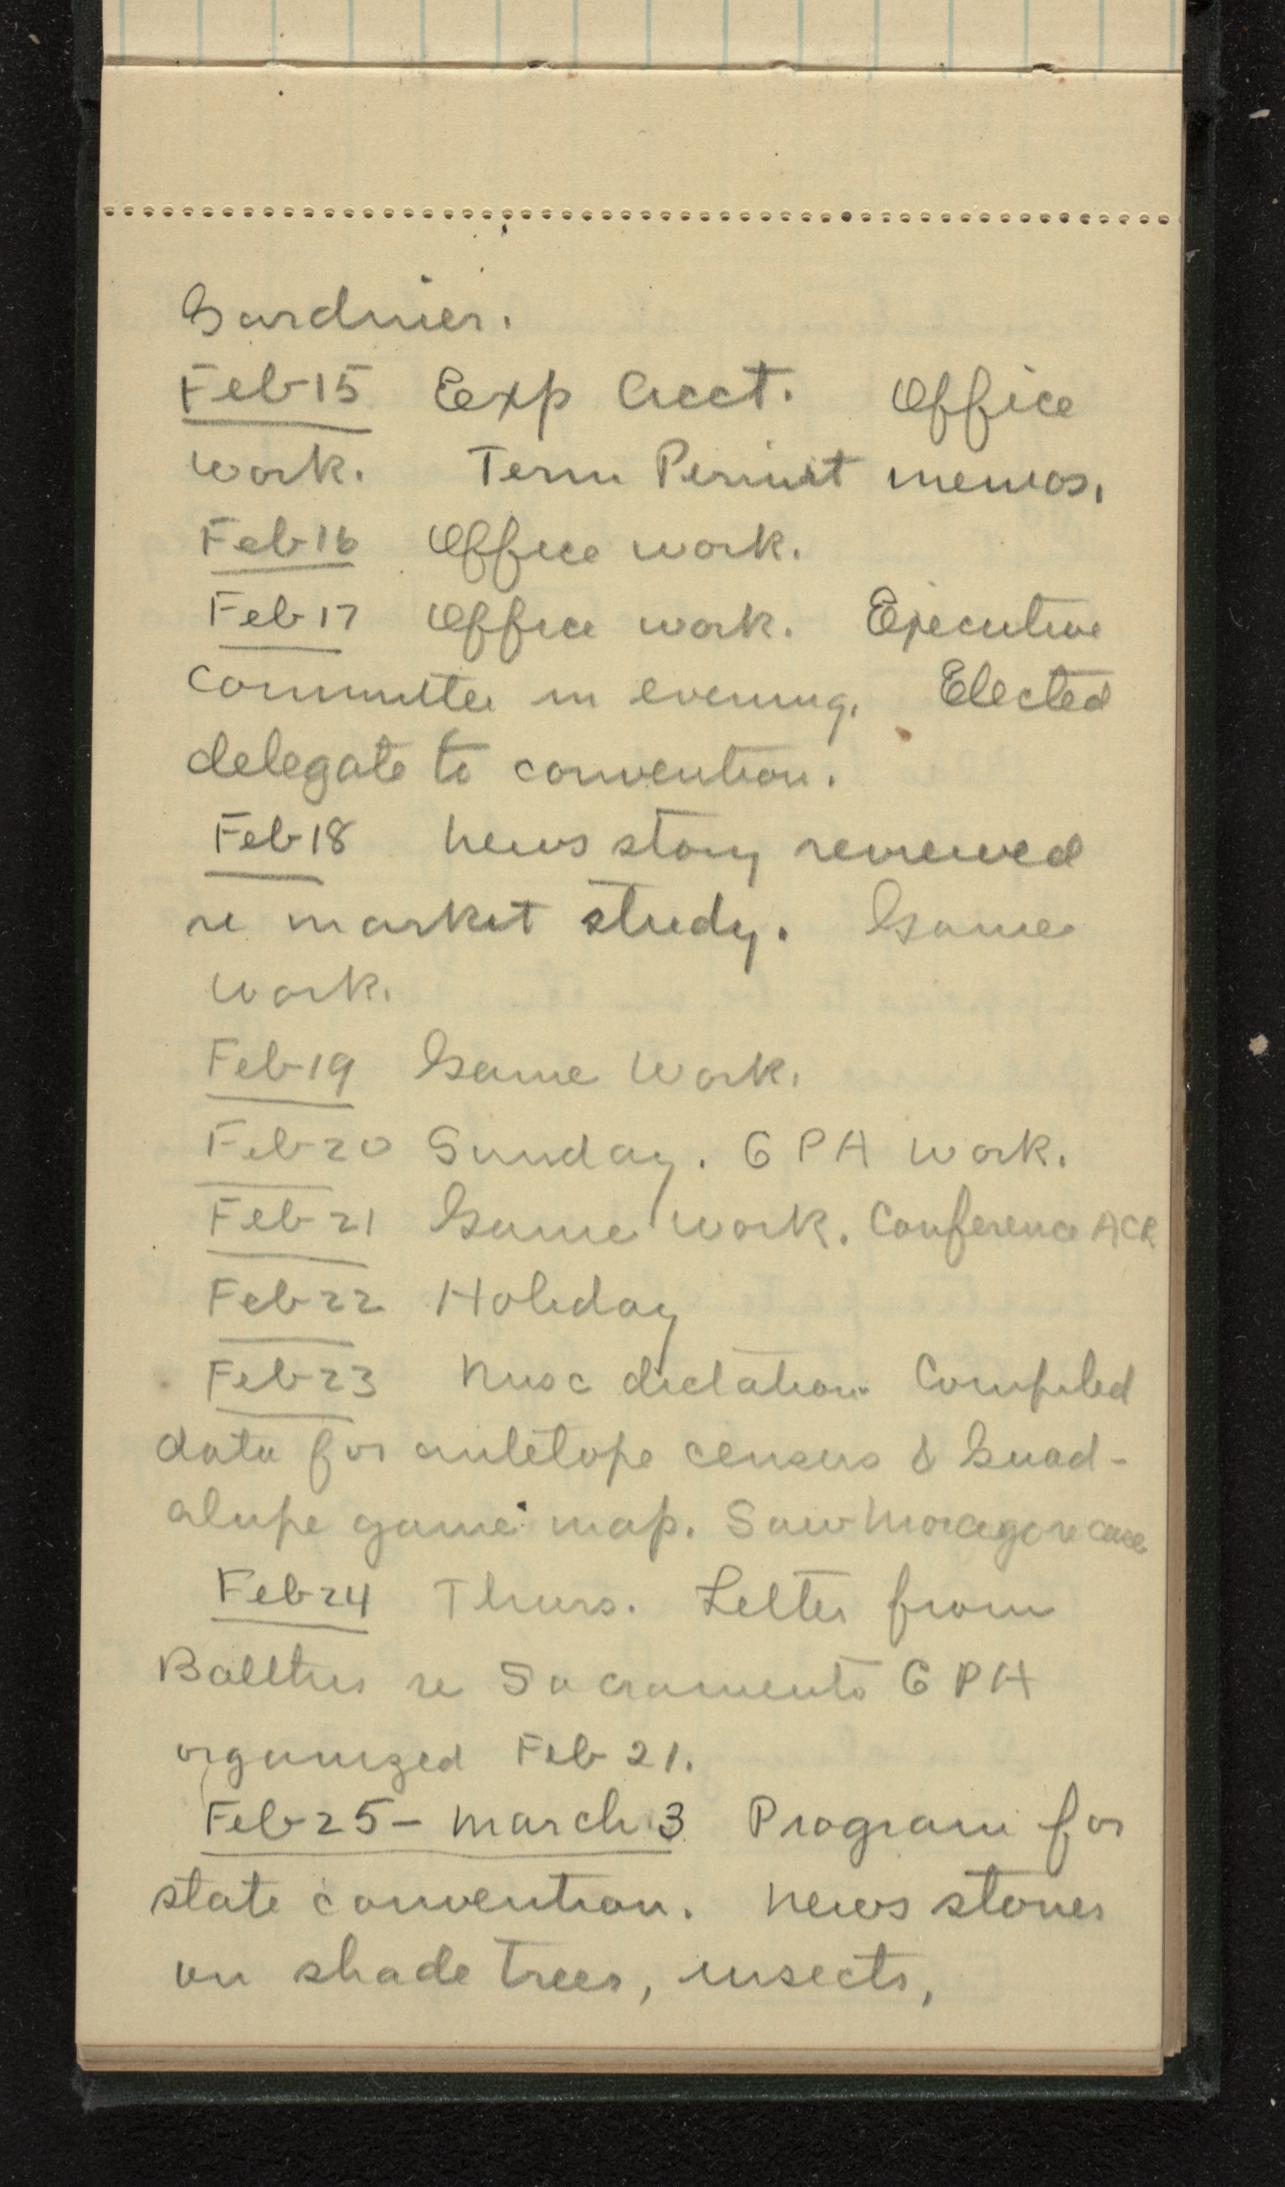 Gardnier.
Feb 15 Exp Acct. Office
work. Term Permit memos.
Feb 16 Office work.
Feb 17 Office work. Executive
Committee in evening. Elected
delegate to convention.
Feb 18 News story reviewed
re market study. Game
work.
Feb 19 Game Work.
Feb 20 Sunday. GPA work.
Feb 21 Game work. Conference ACR
Feb 22 Holiday
Feb 23 Misc dictation. Compiled
data for antelope census & Guad-
alupe game map. Saw re case
Feb 24 Thurs. Letter from
re Sacramento GPA
organized Feb 21.
Feb 25 - March 3 Program for
state convention. News stories
on shade trees, insects,